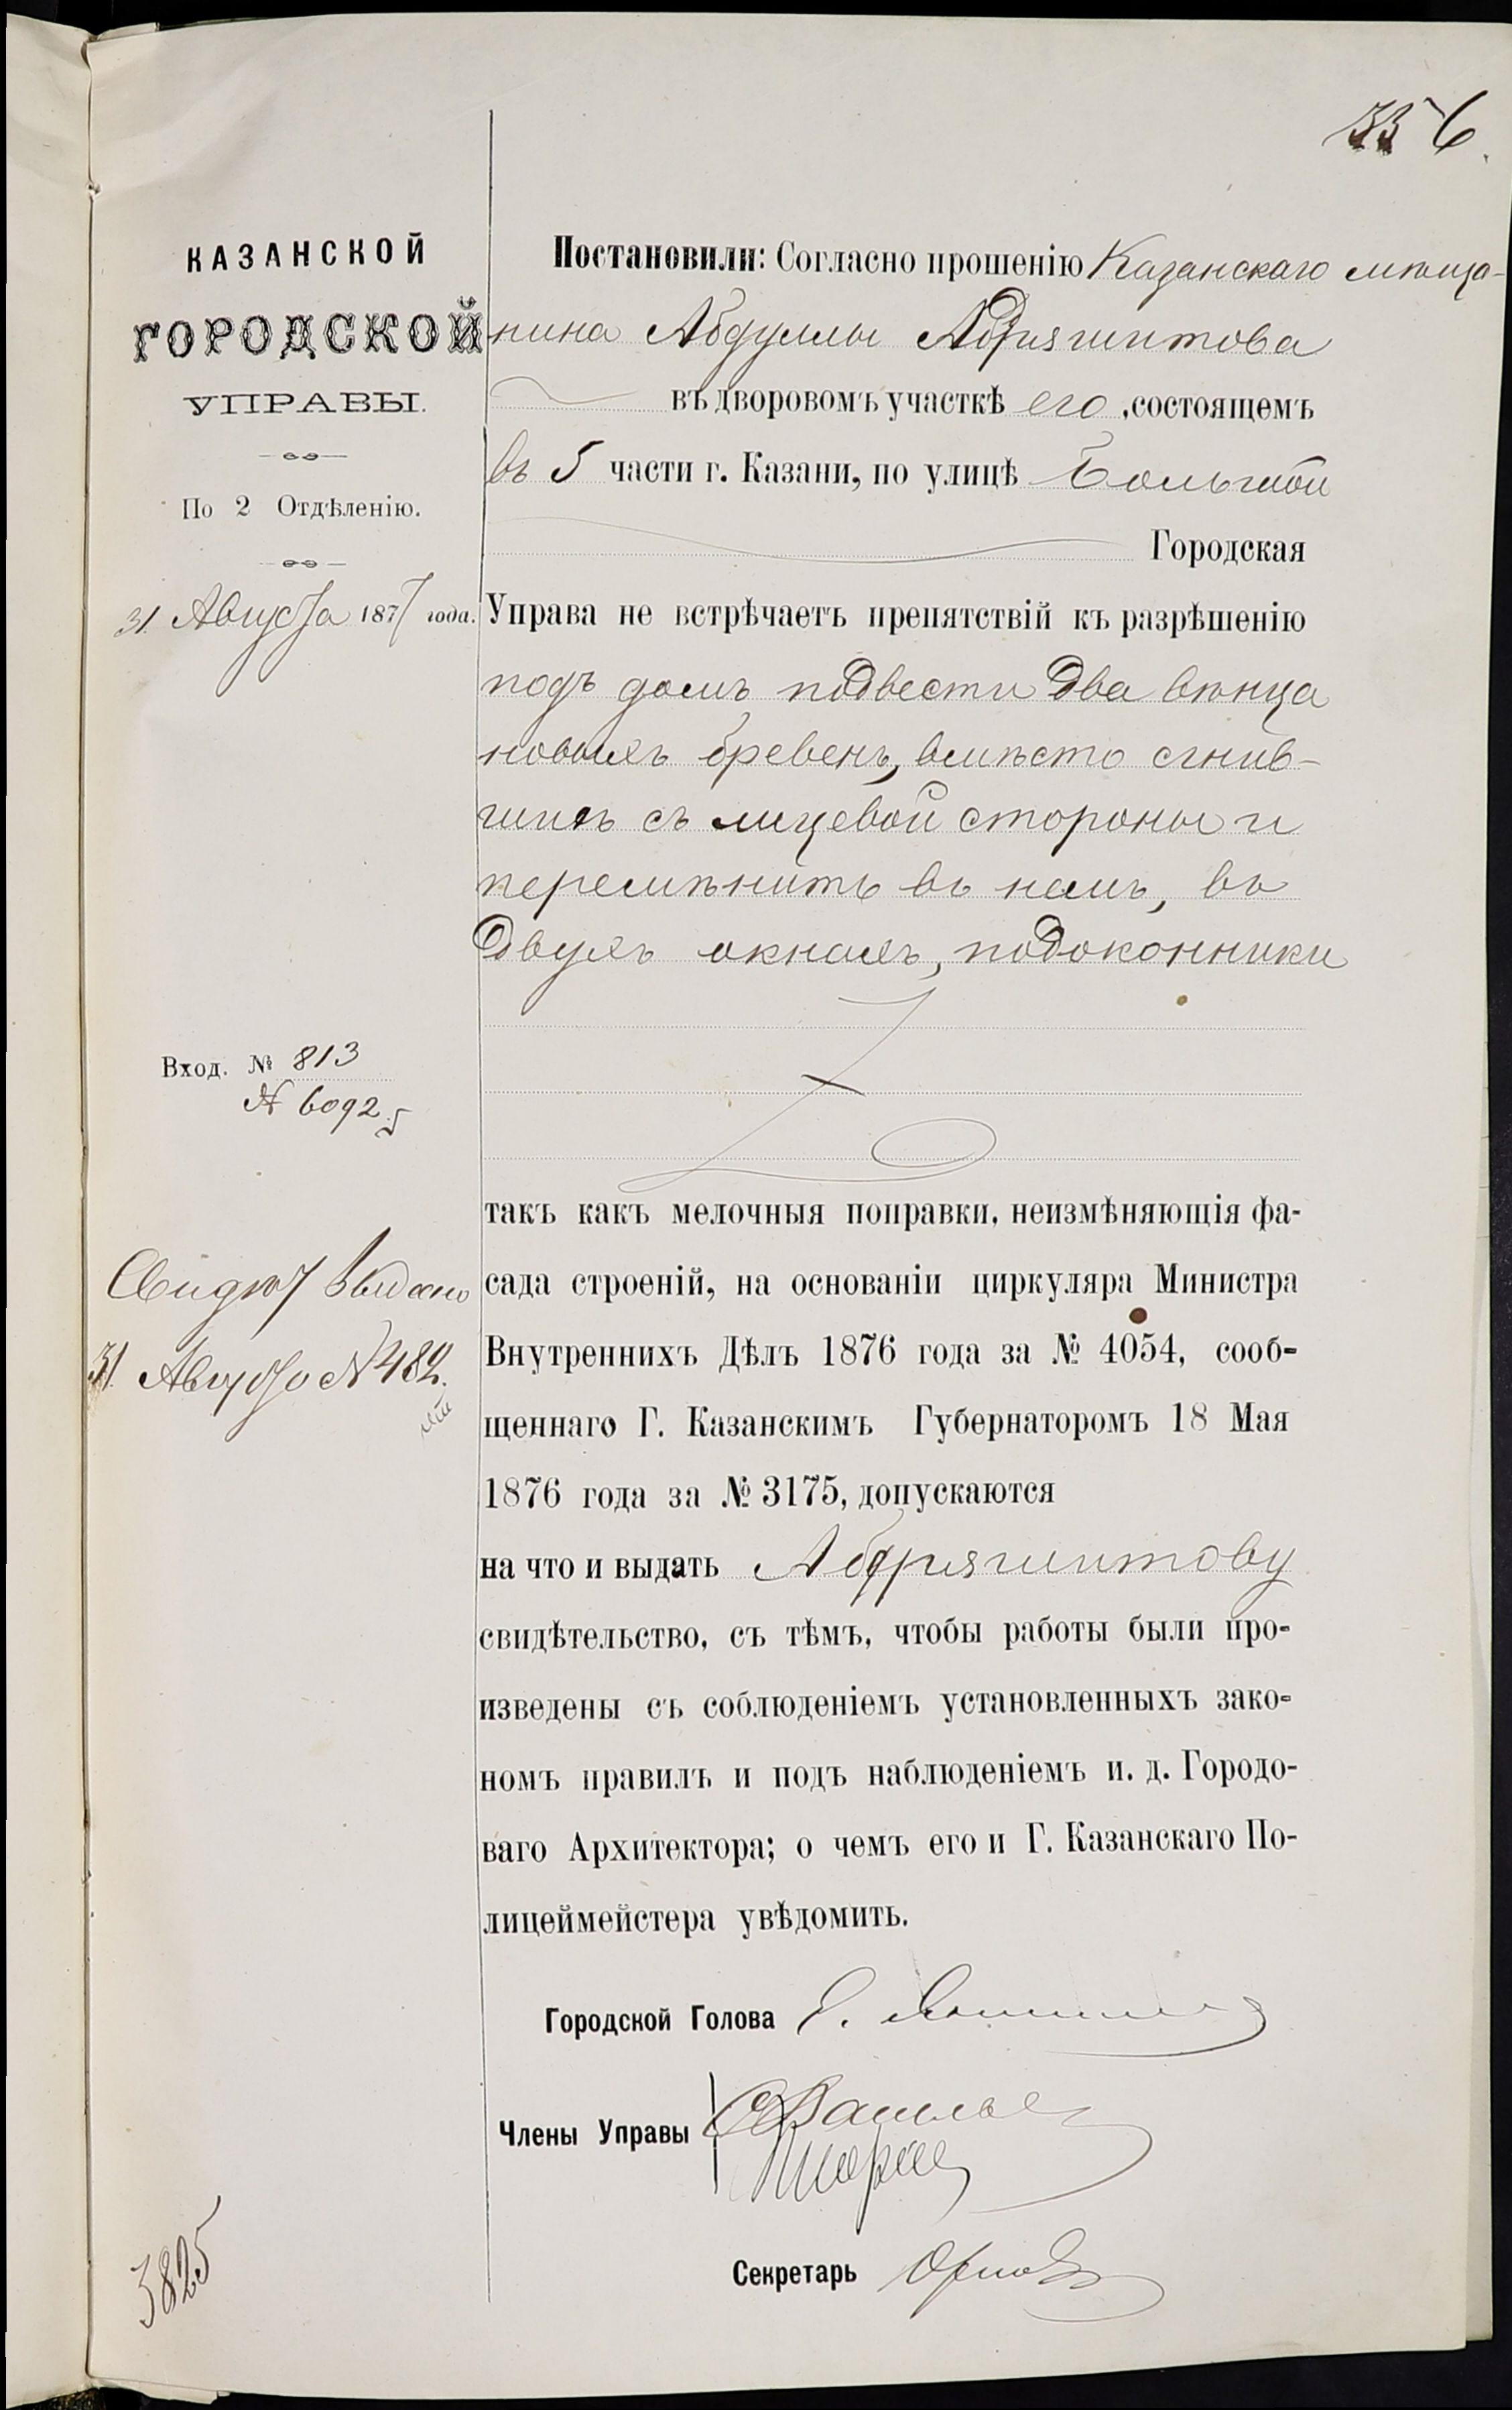 356
КАЗАНСКОЙ
ГОРОДСКОЙ
УПРАВЫ.
По 2 Отдѣленію.
31 Августа 1877 года.
Вход. № 813
№ 6092
Свидѣт выдано
31 Августа № 482.
3825
Постановили: Согласно прошенію Казанскаго мѣща-
нина Абдуллы Абдряшитова
въ дворовомъ участкѣ его, состоящемъ
въ 5 части г. Казани, по улицѣ Большой
Городская
Управа не встрѣчаетъ препятствій къ разрѣшенію
подъ домъ подвести два вѣнца
новыхъ бревенъ, вмѣсто сгнив-
шихъ съ лицевой стороны и
перемѣнить въ немъ, въ
двухъ окнахъ, подоконники
такъ какъ мелочныя поправки, неизмѣняющія фа-
сада строеній, на основаніи циркуляра Министра
Внутреннихъ Дѣлъ 1876 года за № 4054, сооб-
щеннаго Г. Казанскимъ Губернаторомъ 18 Мая
1876 года за № 3175, допускаются
на что и выдать Абдряшитову
свидѣтельство, съ тѣмъ, чтобы работы были про-
изведены съ соблюденіемъ установленныхъ зако-
номъ правилъ и подъ наблюденіемъ и. д. Городо-
ваго Архитектора; о чемъ его и Г. Казанскаго По-
лицеймейстера увѣдомить.
Городской Голова
Члены Управы
Секретарь